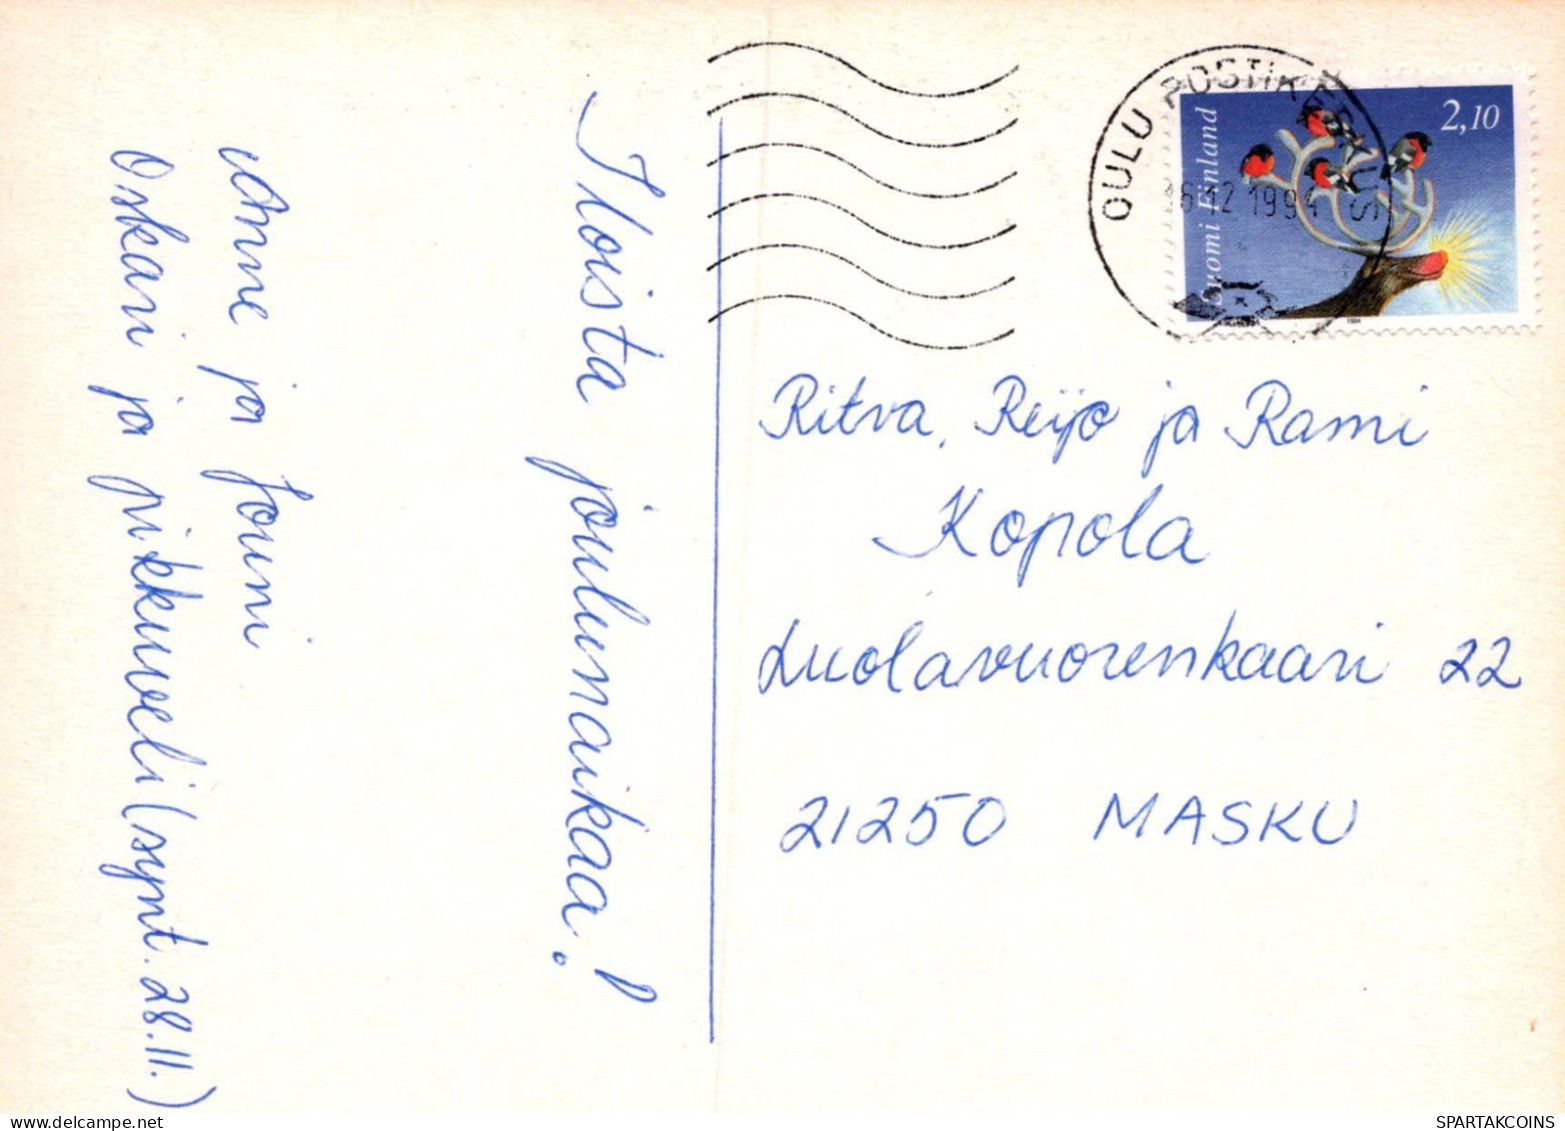 Iloista joulunaikaa!
Anne ja Jouni
Oskari ja pikkuveli (synt. 28.11.)
OULU POSTIKESKUS
16.12 1994
Suomi Finland
2,10
1994
Ritva, Reijo ja Rami
Kopola
Luolavuorenkaari 22
21250 MASKU
SPARTAKCOINS